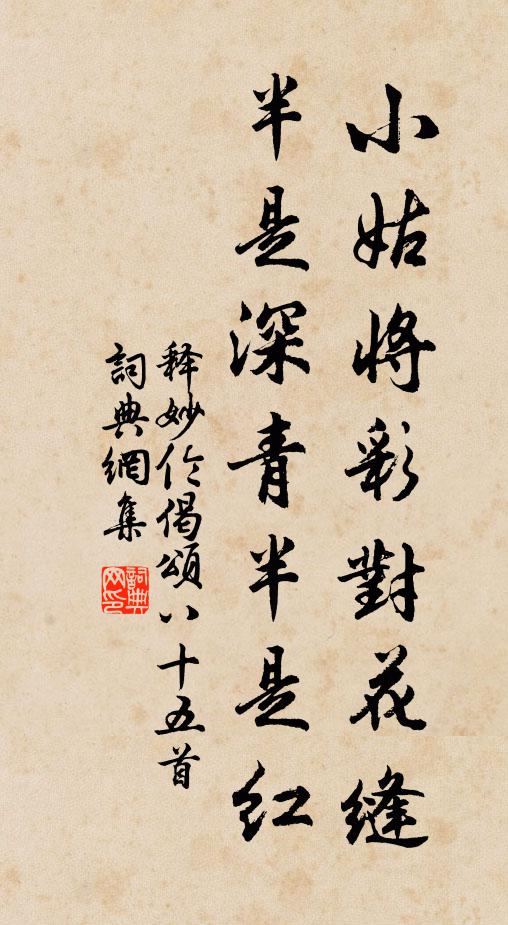 小姑將彩對花縫
半是深青半是紅
释妙伦偈頌八十五首
詞典網集
詞典網印